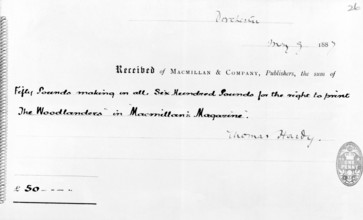 26
Dorchester
May 9 1887
Received of Macmillan & Company, Publishers, the sum of
Fifty Pounds making in all Six Hundred Pounds for the right to print
"The Woodlanders" in "Macmillan's Magazine".
Thomas Hardy.
£ 50 - - - -
ONE PENNY